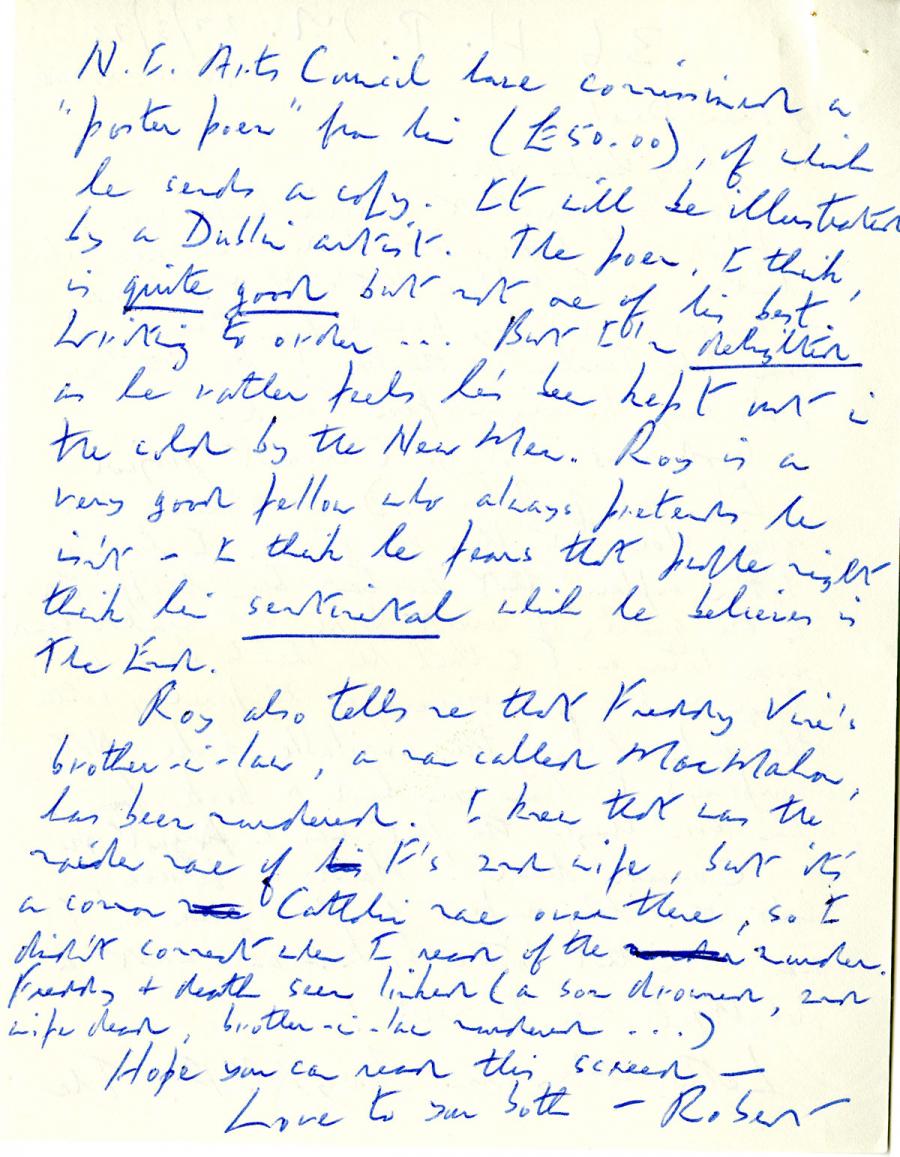 N. I. Arts Council have commissioned a
"poster poem" from him (£50.00), of which
he sends a copy. It will be illustrated
by a Dublin artist. The poem, I think,
is quite good but not one of his best.
Writing to order ... But I'm delighted
as he rather feels he's been kept out in
the cold by the New Men. Roy is a
very good fellow who always pretends he
isn't – I think he fears that people might
think him sentimental which he believes is
The End.
Roy also tells me that Freddy Vine's
brother-in-law, a man called MacMahon,
has been murdered. I knew that was the
maiden name of F's 2nd wife, but it's
a common Catholic name over there, so I
didn't connect when I read of the murder.
Freddy + death seem linked (a son drowned, 2nd
wife dead, brother-in-law murdered ...)
Hope you can read this screed —
Love to you both – Robert